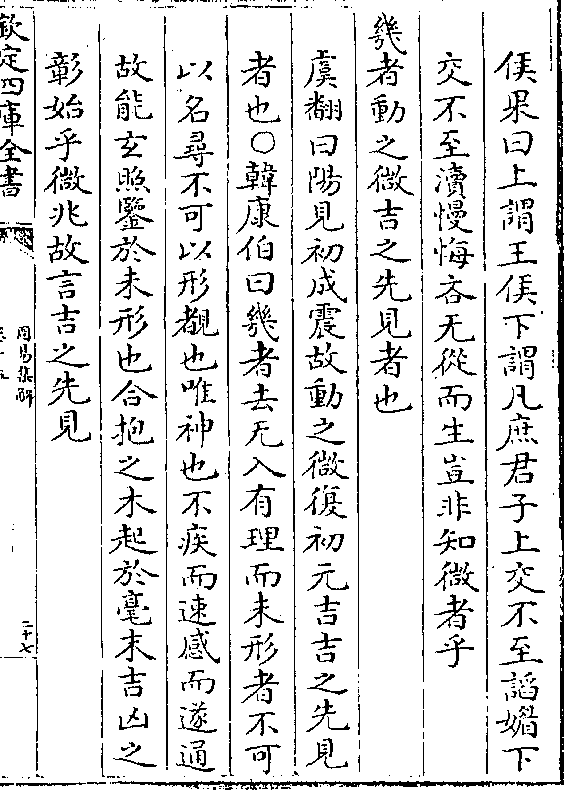 侯果曰上謂王侯下謂凡庶君子上交不至謟媚下
交不至瀆慢悔吝无從而生豈非知微者乎
幾者動之微吉之先見者也
虞翻曰陽見初成震故動之微復初元吉吉之先見
者也○韓康伯曰幾者去无入有理而未形者不可
以名尋不可以形覩也唯神也不疾而速感而遂通
故能玄照鑒於未形也合抱之木起於毫末吉凶之
彰始乎微兆故言吉之先見
欽定四庫全書
周易集解
卷十五
二十七